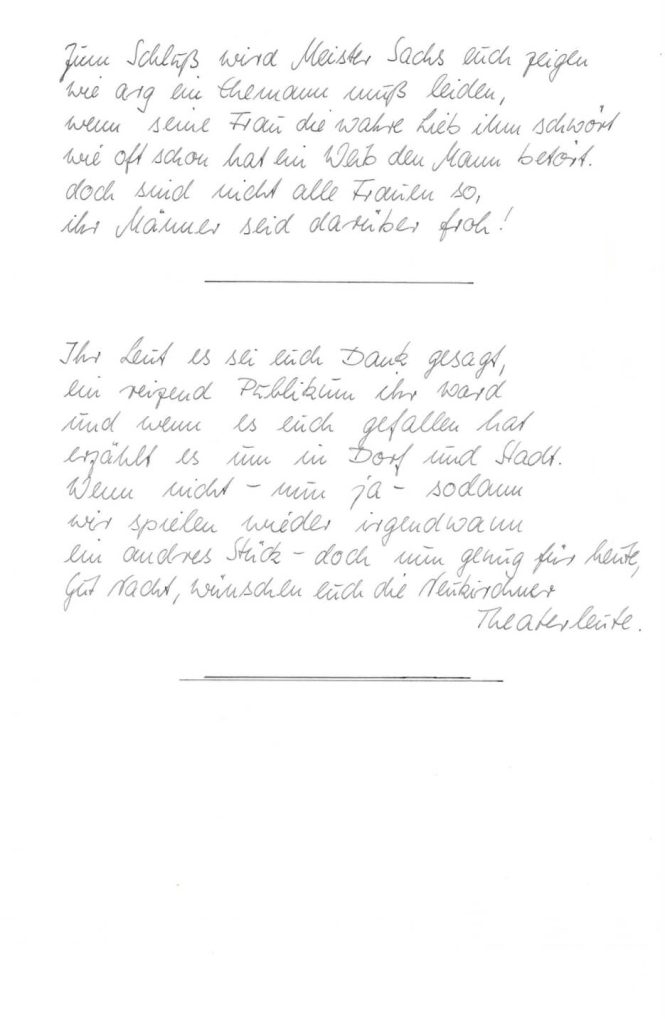 Zum Schluß wird Meister Sachs euch zeigen
wie arg ein Ehemann muß leiden,
wenn seine Frau die wahre Lieb ihm schwört
wie oft schon hat ein Weib den Mann betört.
doch sind nicht alle Frauen so,
ihr Männer seid darüber froh!
Ihr Leut es sei euch Dank gesagt,
ein reizend Publikum ihr ward
und wenn es euch gefallen hat
erzählt es um in Dorf und Stadt.
Wenn nicht – nun ja – sodann
wir spielen wieder irgendwann
ein andres Stück – doch nun genug für heute,
Gut Nacht, wünschen euch die Neukirchner
Theaterleute.